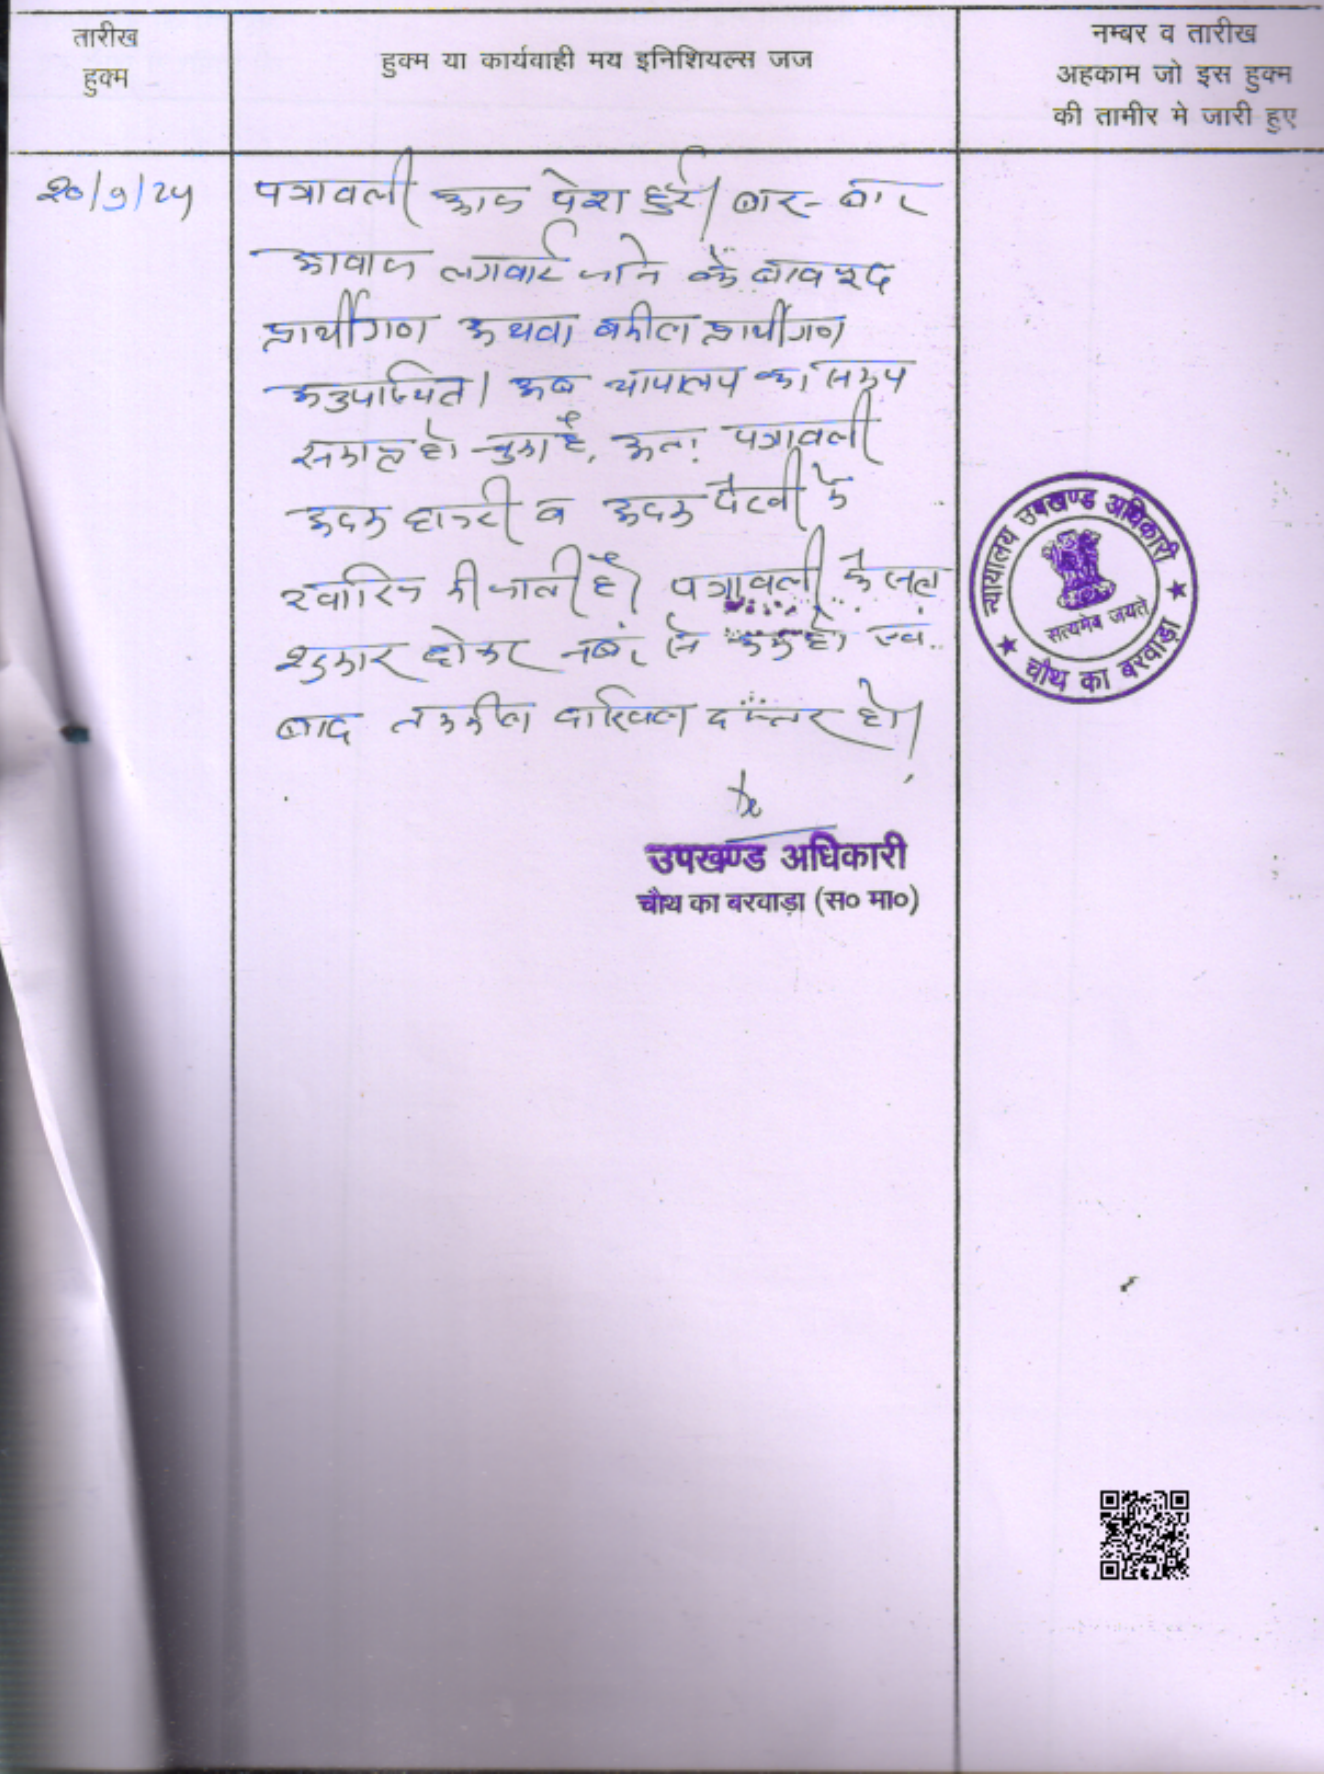 तारीख
हुक्म
हुक्म या कार्यवाही मय इनिशियल्स जज
नम्बर व तारीख
अहकाम जो इस हुक्म
की तामीर मे जारी हुए
पत्रावली आज पेश हुई। बार-बार
आवाज लगवाई जाने के बावजूद
प्रार्थीगण अथवा वकील प्रार्थीगण
अनुपस्थित। अब न्यायालय का समय
समाप्त हो चुका है, अतः पत्रावली
अदम हाजरी व अदम पैरवी में
खारिज की जाती है। पत्रावली फैसल
शुमार होकर नम्बर से कम हो एवं
बाद तकमील दाखिल दफ्तर हो।
उपखण्ड अधिकारी
चौथ का बरवाड़ा (स० मा०)
न्यायालय उपखण्ड अधिकारी
सत्यमेव जयते
चौथ का बरवाड़ा